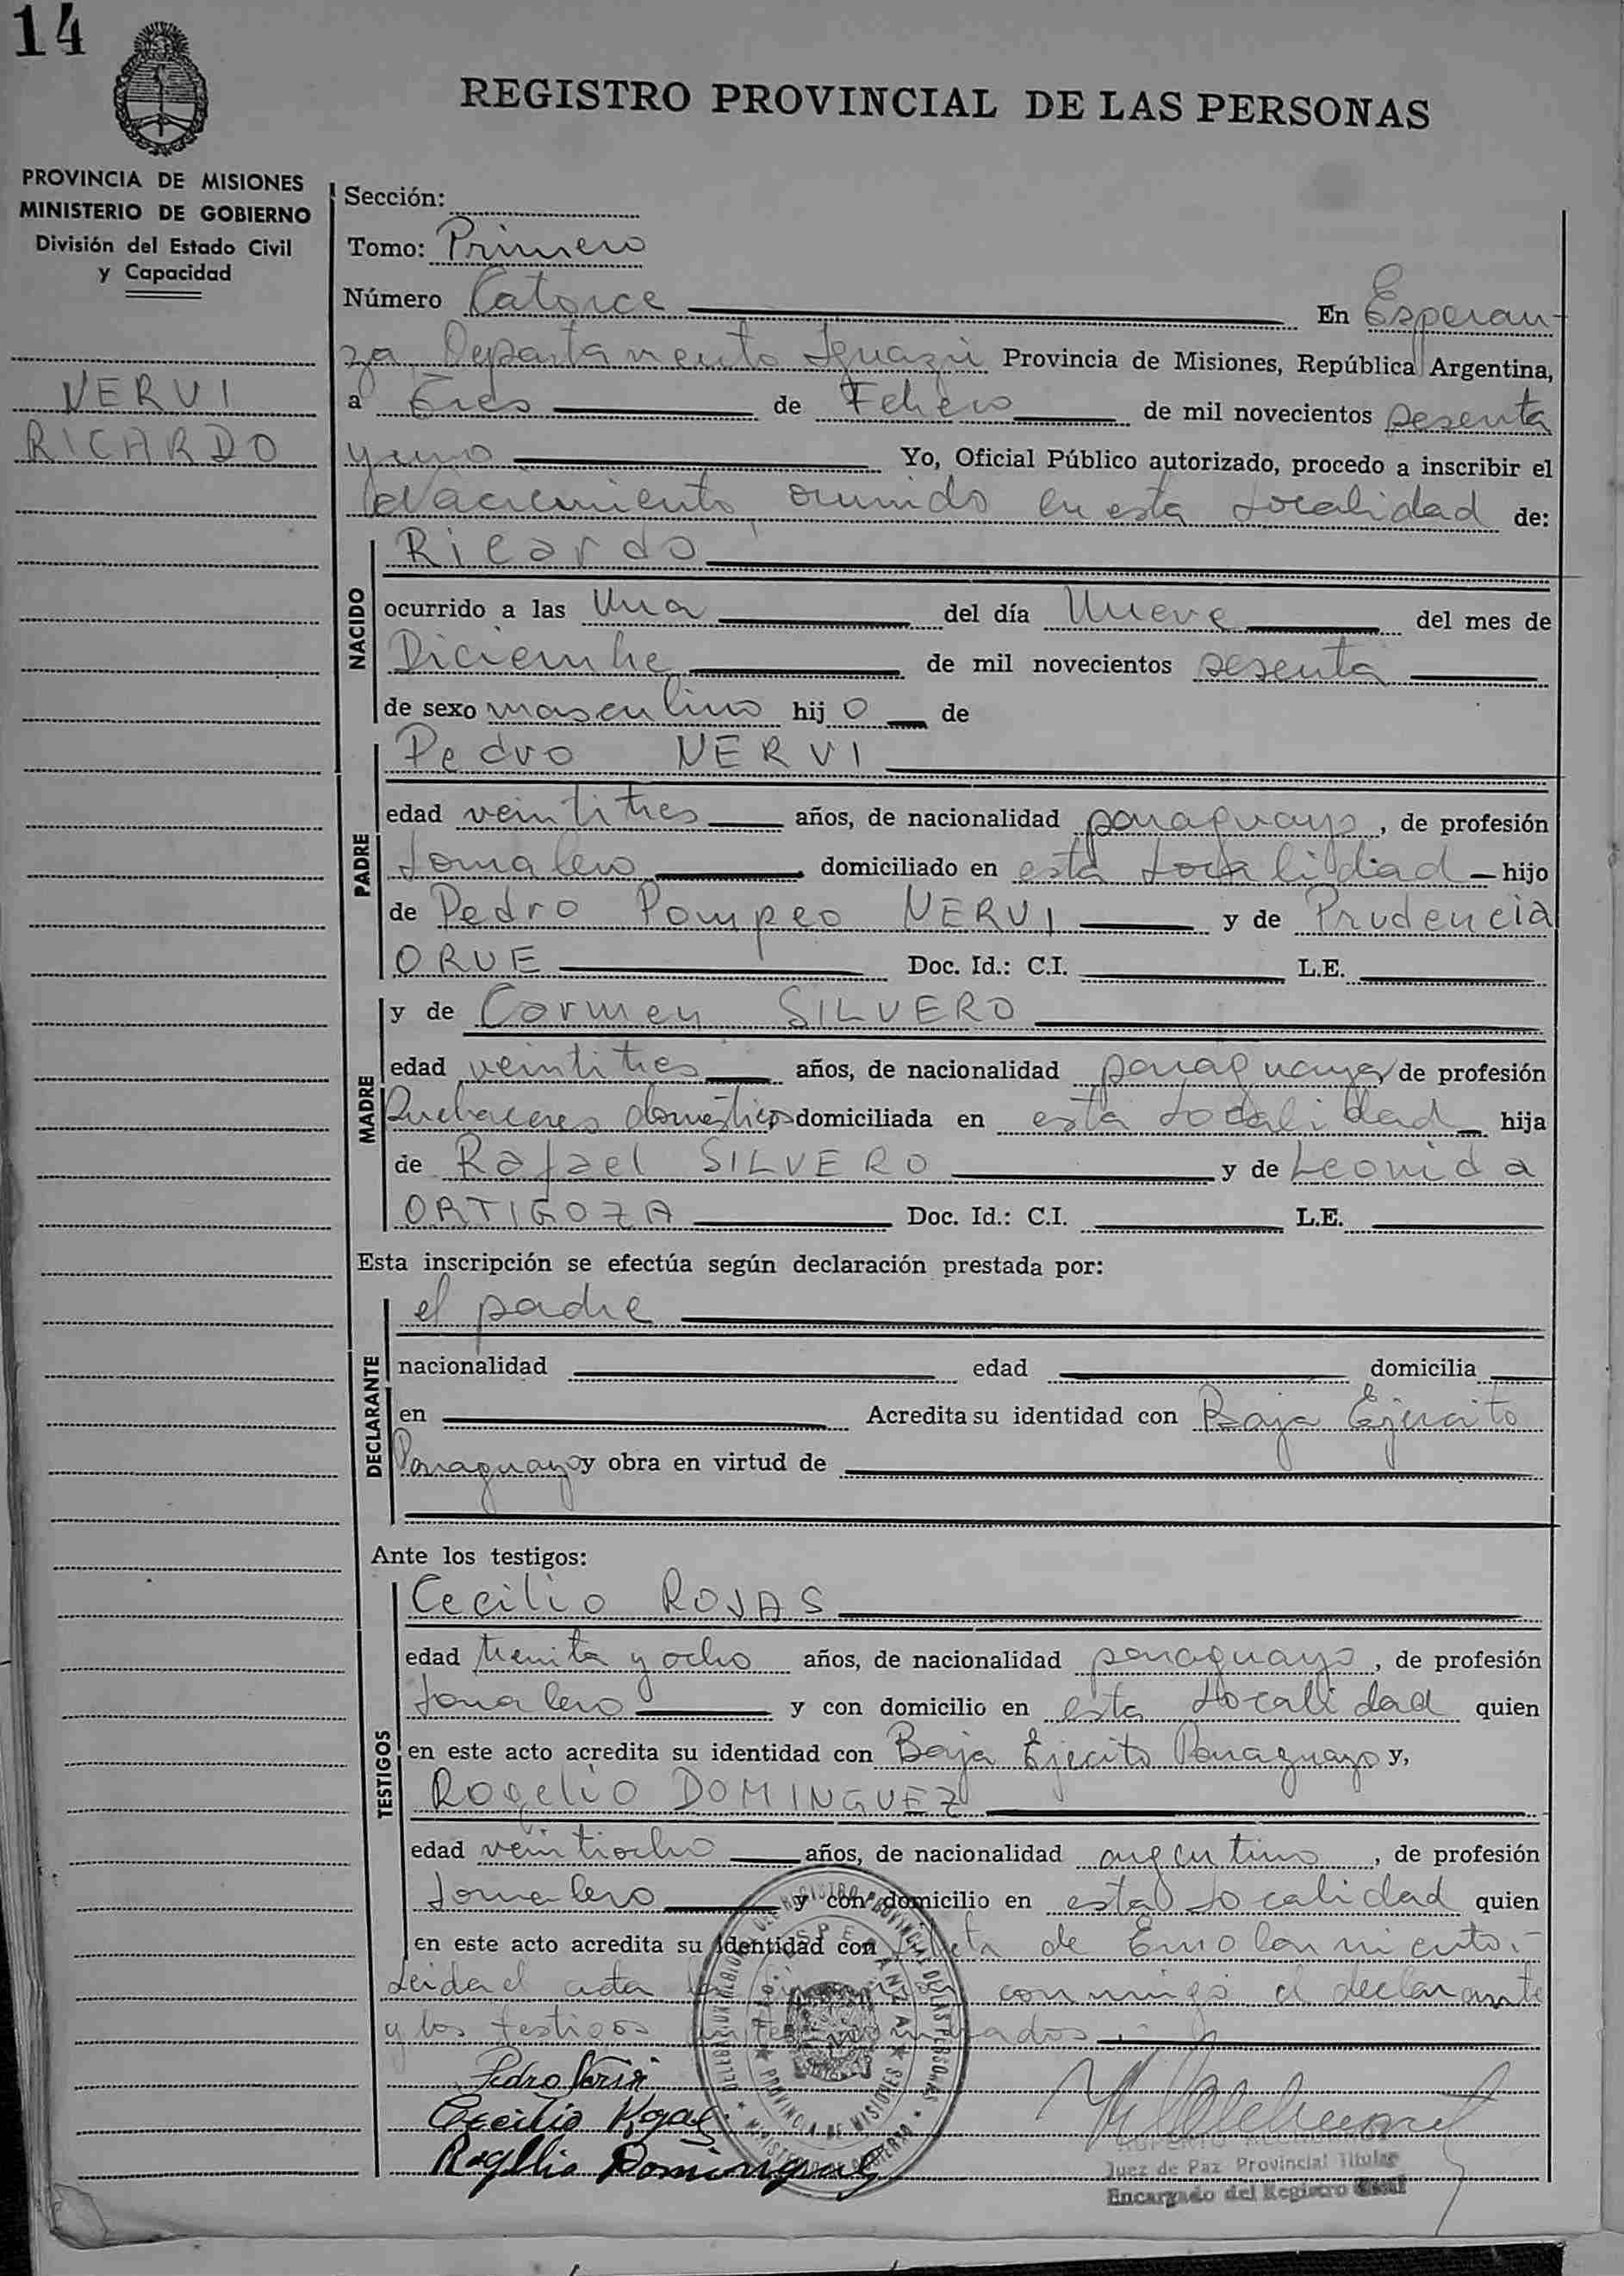 14
REGISTRO PROVINCIAL DE LAS PERSONAS
PROVINCIA DE MISIONES
MINISTERIO DE GOBIERNO
División del Estado Civil
y Capacidad
NERVI
RICARDO
Sección:
Tomo: Primero
Número Catorce En Esperan-
za Departamento Iguazú Provincia de Misiones, República Argentina,
a Tres de Febrero de mil novecientos sesenta
y uno Yo, Oficial Público autorizado, procedo a inscribir el
Nacimiento ocurrido en esta localidad de:
NACIDO
Ricardo
ocurrido a las Una del día Nueve del mes de
Diciembre de mil novecientos sesenta
de sexo masculino hijo de
PADRE
Pedro NERVI
edad veintitres años, de nacionalidad paraguayo, de profesión
Jornalero domiciliado en esta localidad hijo
de Pedro Pompeo NERVI y de Prudencia
ORUE Doc. Id.: C.I. L.E.
MADRE
y de Carmen SILVERO
edad veintitres años, de nacionalidad paraguaya de profesión
Quehaceres domésticos domiciliada en esta localidad hija
de Rafael SILVERO y de Leonida
ORTIGOZA Doc. Id.: C.I. L.E.
Esta inscripción se efectúa según declaración prestada por:
DECLARANTE
el padre
nacionalidad edad domicilia
en Acredita su identidad con Baja Ejército
Paraguayo y obra en virtud de
Ante los testigos:
TESTIGOS
Cecilio ROJAS
edad treinta y ocho años, de nacionalidad paraguayo, de profesión
Jornalero y con domicilio en esta localidad quien
en este acto acredita su identidad con Baja Ejército Paraguayo y,
Rogelio DOMINGUEZ
edad veintiocho años, de nacionalidad argentino, de profesión
Jornalero y con domicilio en esta localidad quien
en este acto acredita su identidad con Libreta de Enrolamiento.-
Leida el acta conmigo el declarante
y los testigos
Pedro Nervi
Cecilio Rojas
Rogelio Dominguez
REGISTRO PROVINCIAL DE LAS PERSONAS
ESPERANZA
PROVINCIA DE MISIONES
Juez de Paz Provincial Titular
Encargado del Registro Civil